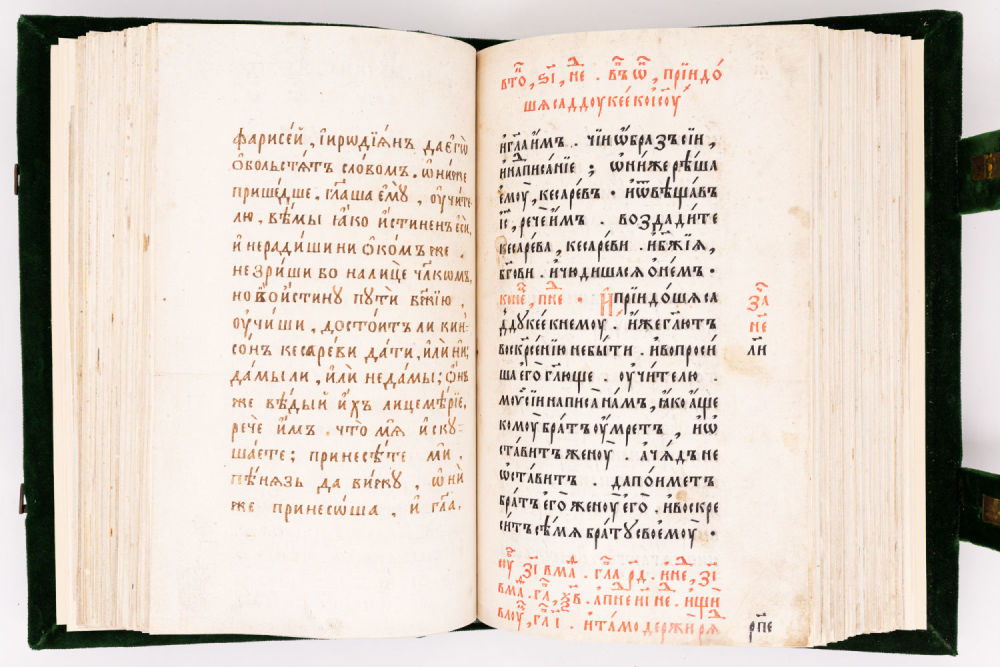 фарисе́й , і҆иродїѧ́нъ да є҆го̀
ѡ҆больстѧ́тъ сло́вомъ . ѡ҆ни́же
прише́дше , гл҃аша є҆мꙋ̀ , оу҆чи́те
лю , вѣ́мы ꙗ҆́ко и҆́стиненъ є҆сѝ
и҆ нерадиши ни ѡ҆ ком же .
не зри́ши бо на лицѐ чл҃кѡмъ,
но вои҆́стинꙋ пꙋтѝ бж҃їю ,
оу҆чи́ши , досто́итъ ли кин
со́нъ кесареви да́ти , и҆лѝ ни;
да́мы ли , и҆лѝ не да́мы; ѡ҆́нъ
же вѣ́дый и҆́хъ лицемѣ́рїе,
речѐ и҆̀мъ . что̀ мѧ̀ и҆скꙋ
ша́ете; принесѣ́те мѝ .
пѣ́нѧзь да ви́жꙋ , ѡ҆нѝ
же принесо́ша , и҆ гл҃а.
вто҃ , ѕ҃і , не . въ ѿ , прїидо́
шѧ саддоуке́е ко і҆с҃оу
и҆ гл҃а и҆́мъ . чїи ѡ҆́бразъ сїи ,
и҆ написа́нїе ; ѡ҆ниже рѣ́ша
є҆моу̀ , кесаре́въ . и҆ ѿвѣща́въ
і҆с҃ , рече и҆́мъ . воздади́те
кесаре́ва , кесаре́ви . и҆ бж҃їѧ ,
бг҃ови . и҆ чюди́шасѧ ѡ҆ не́мъ .
И҆ прїидо́шѧ са
ддуке́е к немоу̀ . и҆́же гл҃ютъ
воскрⷭ҇е́нїю не бы́ти . и҆ вопроси́
ша є҆го̀ гл҃юще . оу҆чи́телю .
моѷсі́и написа̀ на́мъ , ꙗ҆́ко а҆́ще
комоу̀ бра́тъ оу҆́мретъ , и҆ ѡ҆
ста́витъ женоу̀ . а҆ ча́дъ не
ѡ҆ста́витъ . да по́иметъ
бра́тъ є҆го̀ женоу̀ є҆го̀ . и҆ воскре
си́тъ сѣ́мѧ бра́тꙋ своемоу̀ .
за҃
не
ли
рп҃е